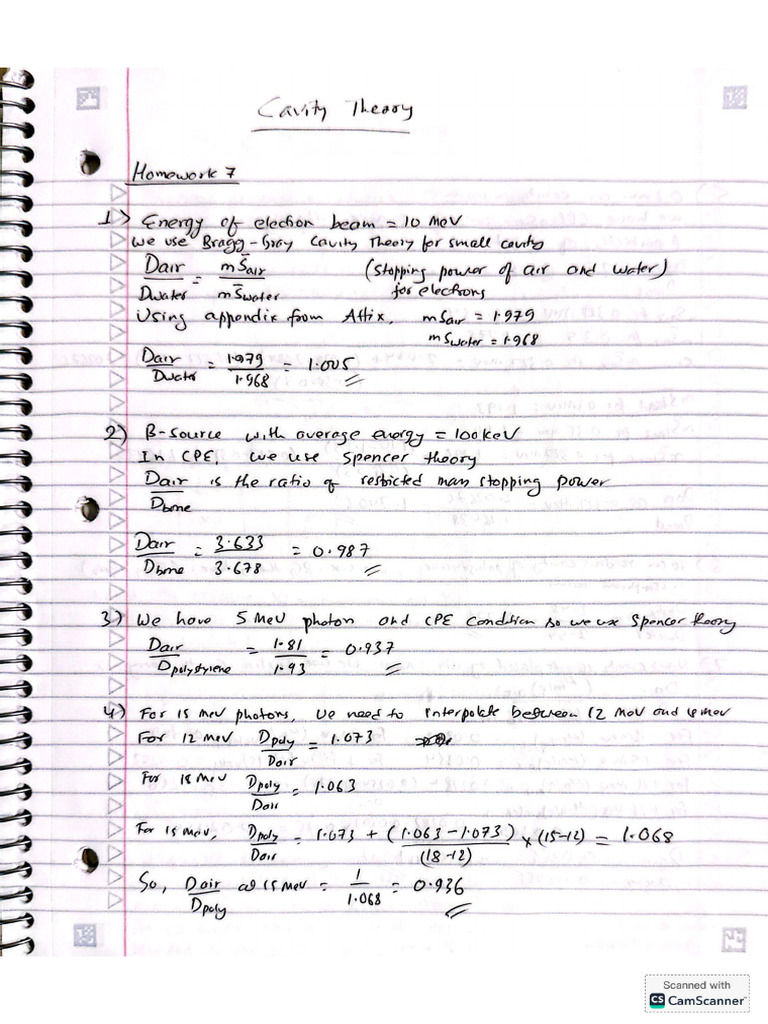 Cavity Theory
Homework 7
1) Energy of electron beam = 10 MeV
We use Bragg-Gray Cavity Theory for small cavity
Dair / Dwater = mS̄air / mS̄water (stopping power of air and water) for electrons
Using appendix from Attix, mSair = 1.979
mSwater = 1.968
Dair / Dwater = 1.979 / 1.968 = 1.005
2) B-source with average energy = 100 keV
In CPE, we use Spencer theory
Dair / Dbone is the ratio of restricted mass stopping power
Dair / Dbone = 3.633 / 3.678 = 0.987
3) We have 5 MeV photon and CPE condition so we use Spencer theory
Dair / Dpolystyrene = 1.81 / 1.93 = 0.937
4) For 15 MeV photons, we need to interpolate between 12 MeV and 18 MeV
For 12 MeV Dpoly / Dair = 1.073
For 18 MeV Dpoly / Dair = 1.063
For 15 MeV, Dpoly / Dair = 1.073 + (1.063 - 1.073) / (18-12) × (15-12) = 1.068
So, Dair / Dpoly at 15 MeV = 1 / 1.068 = 0.936
Scanned with
CS CamScanner